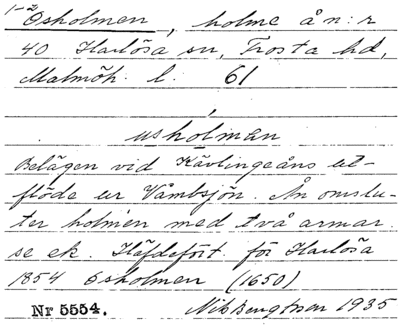 1-2
Osholmen, holme å n:r
40 Harlösa sn, Frosta hd,
Malmöh. l. 61
usholmän
Belägen vid Kävlingeåns ut-
flöde ur Vombsjön. Ån omslu-
ter holmen med två armar.
se ek. Häfdefört. för Harlösa
1854 Osholmen (1650)
Nr 5554. Nils Bengtsson 1935